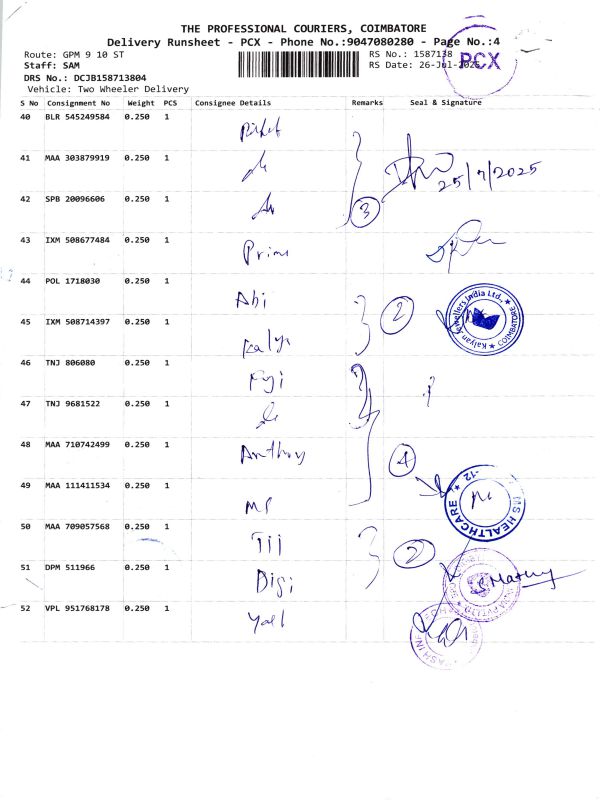 THE PROFESSIONAL COURIERS, COIMBATORE
Delivery Runsheet - PCX - Phone No.:9047080280 - Page No.:4
Route: GPM 9 10 ST
RS No.: 1587138
Staff: SAM
RS Date: 26-Jul-2025
PCX
DRS No.: DCJB158713804
Vehicle: Two Wheeler Delivery
S No Consignment No Weight PCS Consignee Details Remarks Seal & Signature
40 BLR 545249584 0.250 1
41 MAA 303879919 0.250 1
25/7/2025
42 SPB 20096606 0.250 1
3
43 IXM 508677484 0.250 1 Prime
44 POL 1718030 0.250 1 Abi
2
Kalyan Jewellers India Ltd., COIMBATORE
45 IXM 508714397 0.250 1 Kalya
46 TNJ 806080 0.250 1 Fuji
47 TNJ 9681522 0.250 1
48 MAA 710742499 0.250 1 Anthony
4
49 MAA 111411534 0.250 1 MS
MS HEALTHCARE -12
50 MAA 709057568 0.250 1
2
51 DPM 511966 0.250 1 Digi
52 VPL 951768178 0.250 1